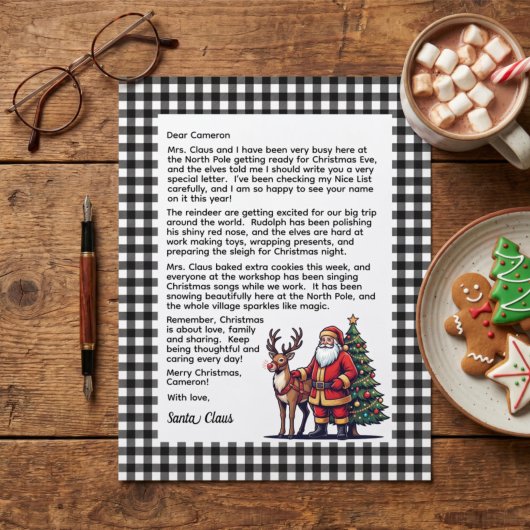 Dear Cameron
Mrs. Claus and I have been very busy here at
the North Pole getting ready for Christmas Eve,
and the elves told me I should write you a very
special letter. I've been checking my Nice List
carefully, and I am so happy to see your name
on it this year!
The reindeer are getting excited for our big trip
around the world. Rudolph has been polishing
his shiny red nose, and the elves are hard at
work making toys, wrapping presents, and
preparing the sleigh for Christmas night.
Mrs. Claus baked extra cookies this week, and
everyone at the workshop has been singing
Christmas songs while we work. It has been
snowing beautifully here at the North Pole, and
the whole village sparkles like magic.
Remember, Christmas
is about love, family
and sharing. Keep
being thoughtful and
caring every day!
Merry Christmas,
Cameron!
With love,
Santa Claus